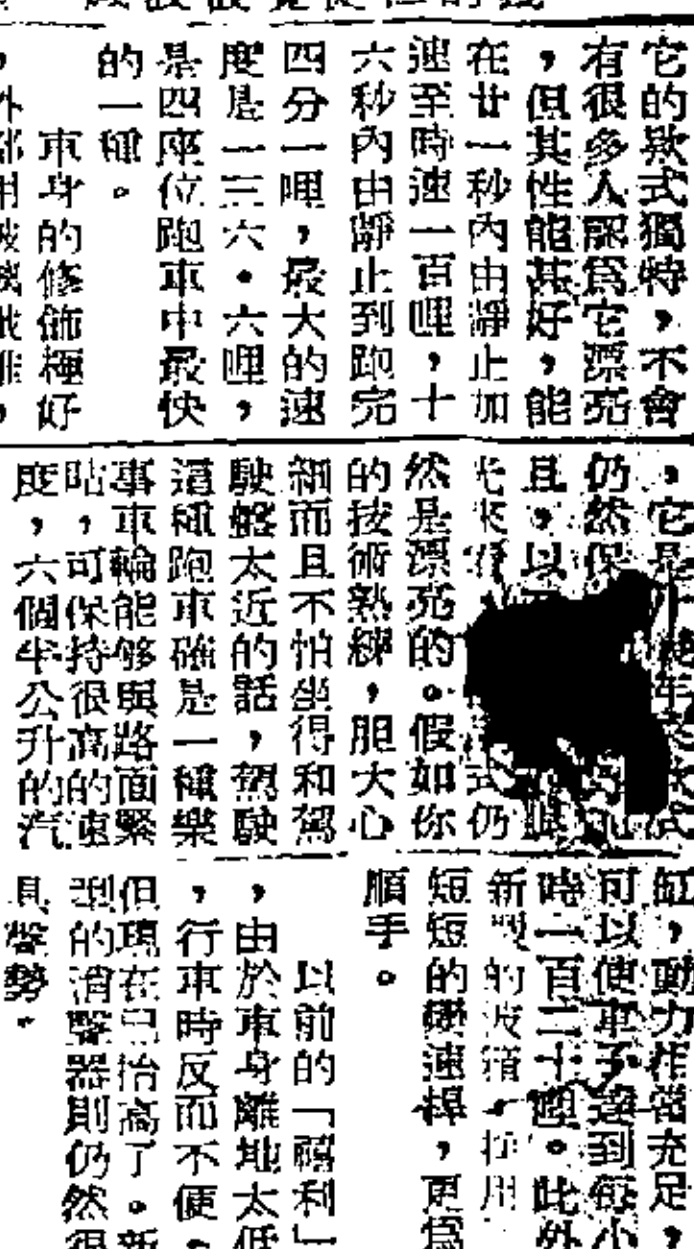 它的欵式獨特，不會
有很多人認爲它漂亮
，但其性能甚好，能
在廿一秒內由靜止加
速至時速一百哩，十
六秒內由靜止到跑完
四分一哩，最大的速
度是一三六．六哩，
是四座位跑車中最快
的一種。
車身的修飾極好
，它是
仍然保
且，以
光來
然是漂亮的。假如你
的技術熟練，胆大心
細而且不怕坐得和駕
駛盤太近的話，駕駛
這種跑車確是一種樂
事車輪能够與路面緊
咕，可保持很高的速
度，六個半公升的汽
缸，動力相當充足，
可以使車子達到每小
時一百二十哩。此外
新型的波箱
短短的變速桿，更爲
順手。
以前的「禧利」
，由於車身離地太低
，行車時反而不便。
但現在已抬高了。新
型的消聲器則仍然很
具聲勢。